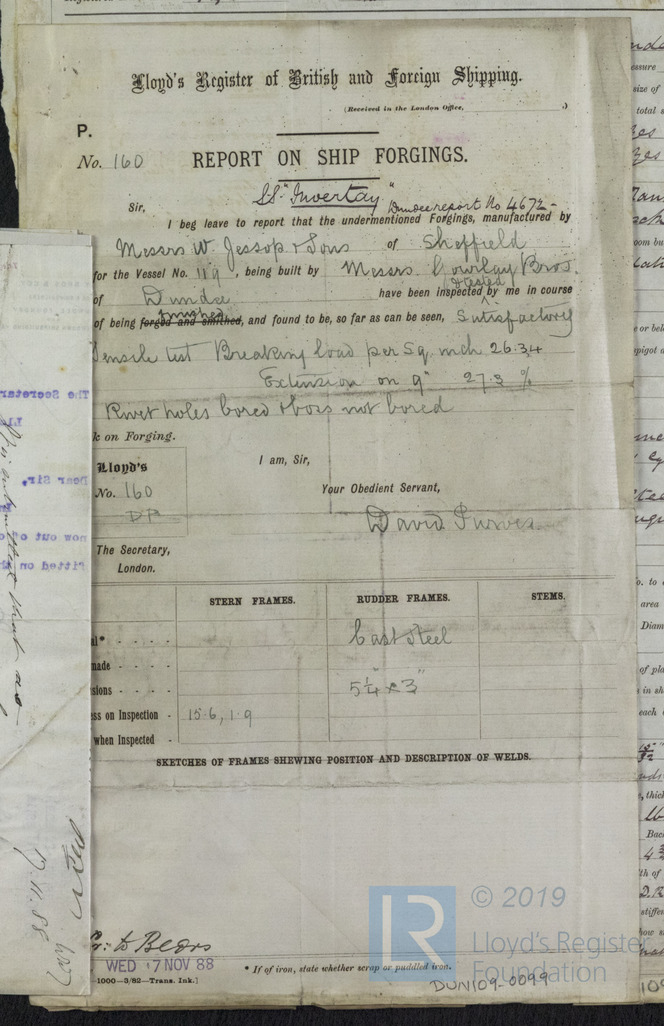 Lloyd's Register of British and Foreign Shipping.
(Received in the London Office, .)
P.
No. 160 REPORT ON SHIP FORGINGS.
SS "Invertay" Dundee report No 4672-
Sir,
I beg leave to report that the undermentioned Forgings, manufactured by
Messrs W. Jessop & Sons of Sheffield
for the Vessel No. 119, being built by Messrs. Gourlay Bros.
of Dundee have been inspected & tested by me in course
of being forged and smithed, finished and found to be, so far as can be seen, Satisfactory
Tensile test Breaking load per sq. inch 26.34
Extension on 9" 27.3 %
Rivet holes bored & boss not bored
k on Forging.
Lloyd's
No. 160
DP
I am, Sir,
Your Obedient Servant,
David Purves
The Secretary,
London.
STERN FRAMES. RUDDER FRAMES. STEMS.
al* Cast steel
made
sions 5¼" x 3"
ess on Inspection 15.6, 1.9
when Inspected
SKETCHES OF FRAMES SHEWING POSITION AND DESCRIPTION OF WELDS.
to Bears
WED 7 NOV 88
* If of iron, state whether scrap or puddled iron.
1000—3/82—Trans. Ink.]
DUN109-0099
LR © 2019
Lloyd's Register
Foundation
The Secretar
Dear Sir,
now out o
fitted on
7.11.88